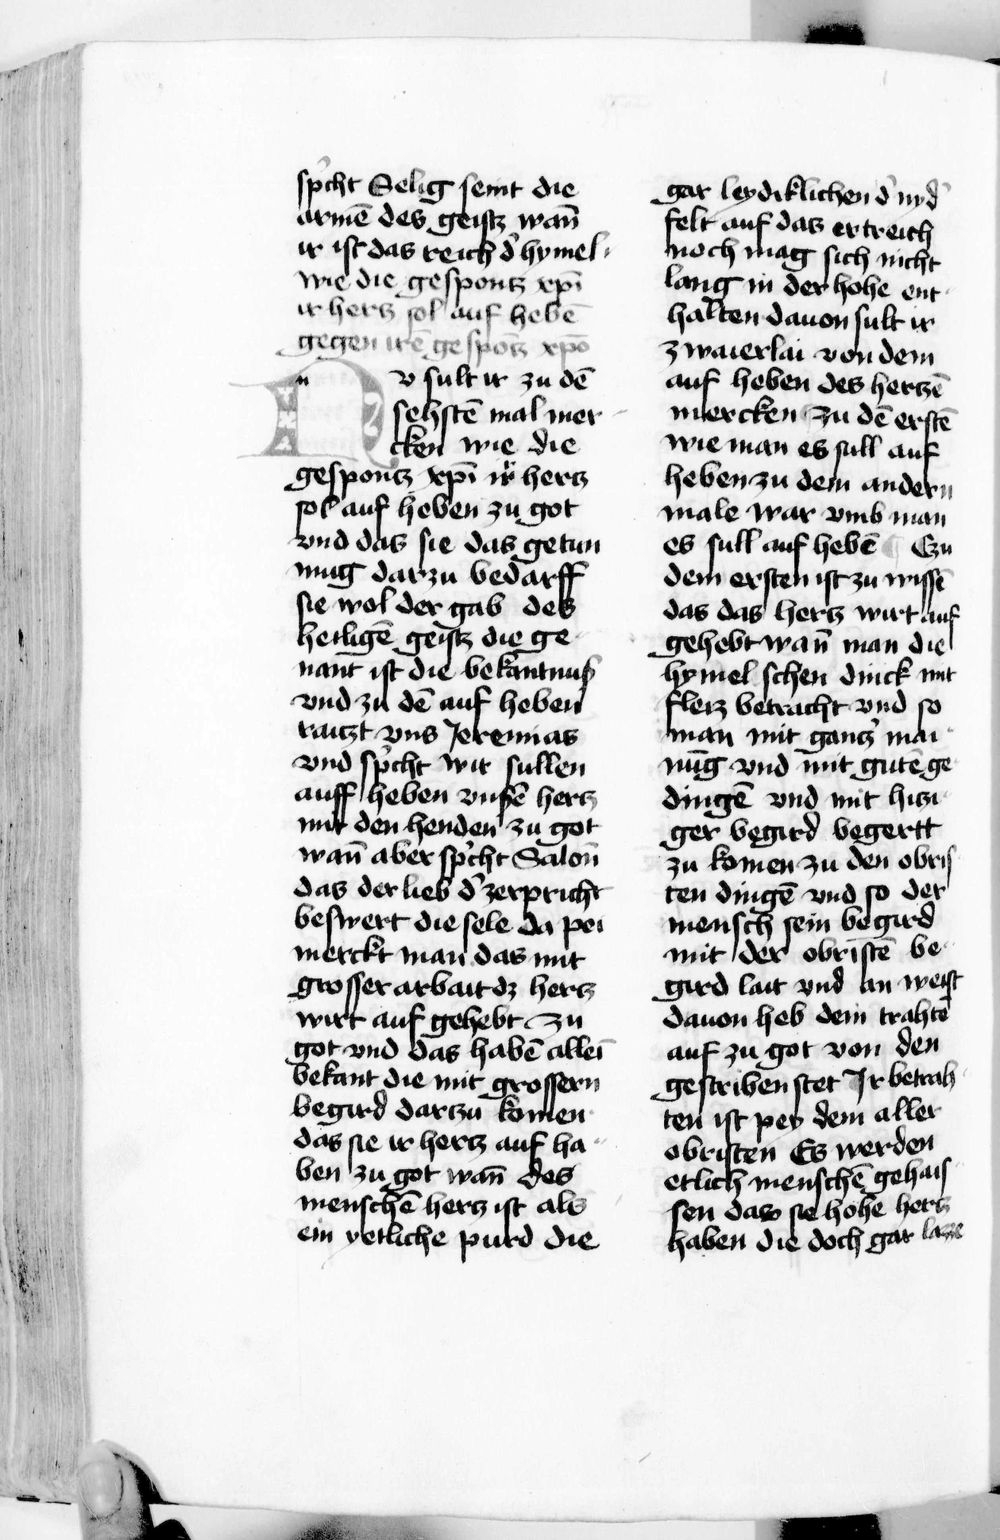 sp̾cht Selig seint die
armē des geistz wan̄
ir ist das reich d̾ hymel
wie die gespontz xp̄i
ir hertz sol auf hebē
gegen irē gespōtz xp̄o
Nv sult ir zu dē
sehstē mal mer
cken wie die
gespontz xp̄i ir hertz
sol auf heben zu got
vnd das sie das getun
mug darzu bedarff
sie wol der gab des
heiligē geistz die ge
nant ist die bekantnuß
vnd zu dē auf heben
raitzt vns Jeremias
vnd sp̾cht wir sullen
auff heben vns̾e hertz
mit den henden zu got
wan̄ aber sp̾cht Salon̄
das der lieb d̾ zerpricht
beswert die sele da pei
merckt man das mit
grosser arbait dz hertz
wirt auf gehebt zu
got vnd das habē alleī
bekant die mit grossern
begird dartzu komen
das sie ir hertz auf ha
ben zu got wan̄ des
menschē hertz ist als
ein yetliche purd die
gar leydiklichen d̾ nyd̾
felt auf das ertreich
noch mag sich nicht
lang in der hohe ent
halten dauon sult ir
zwaierlai von dem
auf heben des hertzē
mercken Zu dē erstē
wie man es sull auf
heben zu dem andern
male war vmb man
es sull auf hebē Czu
dem ersten ist zu wissē
das das hertz wirt auf
gehebt wan̄ man die
hymelschen dinck mit
fleiz betracht vnd so
man mit gantz̾ mai
nūg vnd mit gutē ge
dingē vnd mit hitzi
ger begird begertt
zu komen zu den obris
ten dingē vnd so der
mensch sein begird
mit der obristē be
gird lait vnd an weist
dauon heb dein trahtē
auf zu got von den
gestriben stet Jr betrah
ten ist pey dem aller
obristen Es werden
etlich menschē gehais
sen das sie hohe hertz
haben die doch gar lazze